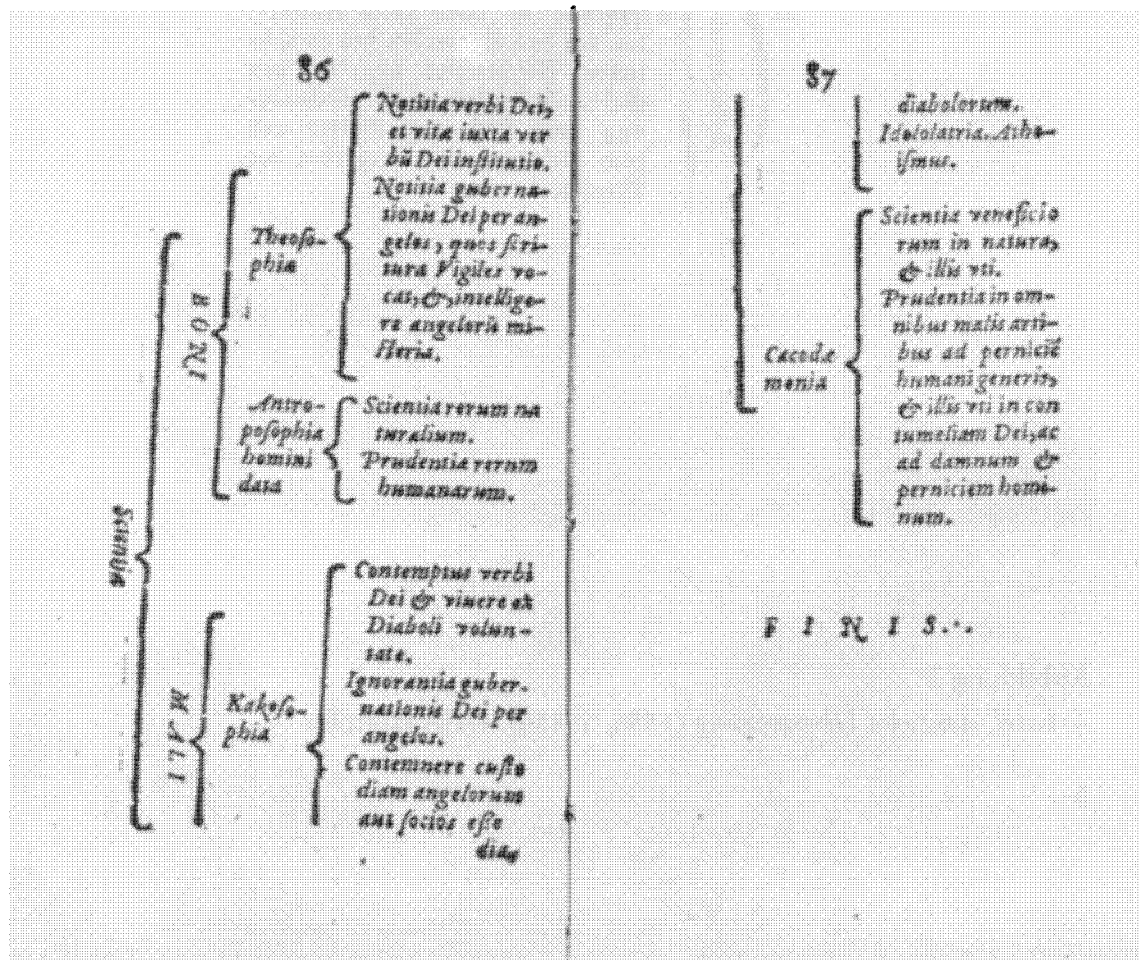 86
Notitia verbi Dei,
et vitæ iuxta ver
bū Dei institutio.
Notitia guberna-
tionis Dei per an-
gelos, quos scri-
tura Vigiles vo-
cat, &, intellige-
re angelorū mi-
steria.
Theoso-
phia
BONI
Antro-
posophia
homini
data
Scientia rerum na
turalium.
Prudentia rerum
humanarum.
Scientia
Contemptus verbi
Dei & viuere ex
Diaboli volun-
tate.
Ignorantia guber-
nationis Dei per
angelos.
Contemnere custo
diam angelorum
aut socios esse
dia-
Kakoso-
phia
MALI
87
diabolorum.
Idololatria. Athe-
ismus.
Scientia veneficio
rum in natura,
& illis vti.
Prudentia in om-
nibus malis arti-
bus ad perniciē
humani generis,
& illis vti in con
tumeliam Dei, ac
ad damnum &
perniciem homi-
num.
Cacodæ
monia
F I N I S.·.